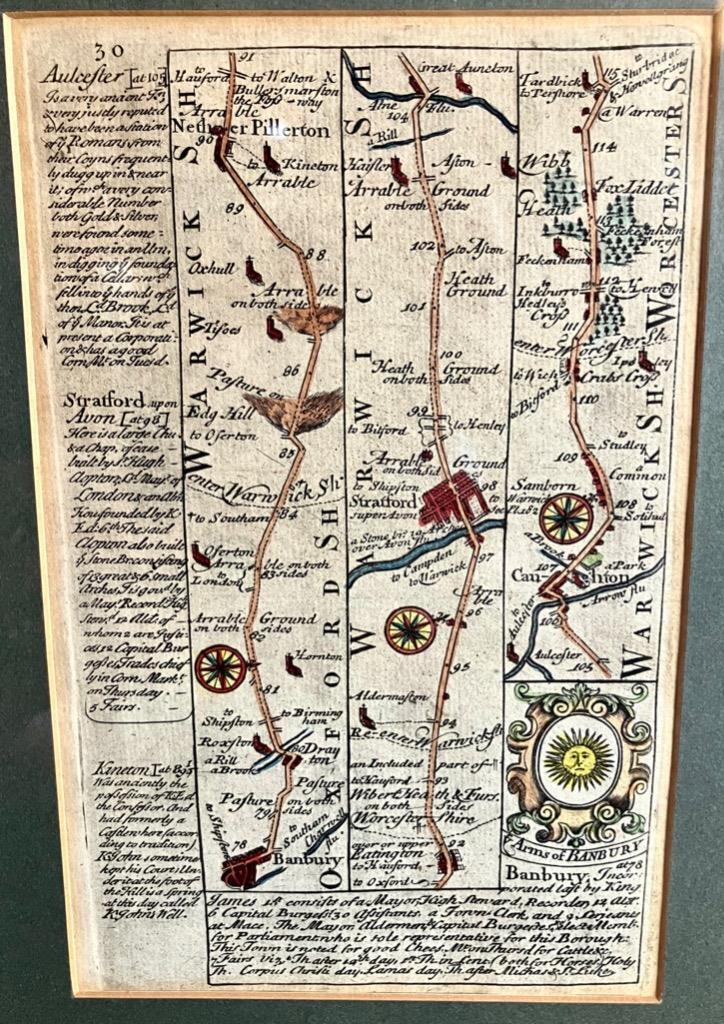 30
Aulcester [at 105]
Is a very ancient
& very justly reputed
to have been a station
of yͤ Romans from
their Coyns frequent-
ly dugg up in & near
it; of wᶜʰ a very con-
siderable Number
both Gold & Silver,
were found some-
time agoe in an Urn,
in digging yͤ founda-
tion of a Cellar wᶜʰ
fell into yͤ hands of yͤ
then Lᵈ Brook, Lᵈ
of yͤ Manor. It is at
present a Corporati-
on & has a good
Corn Mᵗ on Tuesd.
Stratford upon
Avon [at 98]
Here is a large Chu.
& a Chap. of ease
built by Sʳ Hugh
Clopton, Lᵈ Mayʳ of
London & an Alms
Hou. founded by K
Ed. 6ᵗʰ The said
Clopton also built
yͤ Stone Br. consisting
of 13 great & 6 small
Arches. It is govᵈ by
a May. Record. High
Stew. 12 Ald. of
whom 2 are Justi-
ces, 12 Capital Bur-
gesses, Trades chief-
ly in Corn. Markᵗ
on Thursday.
5 Fairs.
Kineton [at 89]
Was anciently the
possession of K Ed
the Confessor. And
had formerly a
Castle, where (accor-
ding to tradition)
K John sometime
kept his Court. Un-
der it at the foot of
the Hill is a Spring
at this day called
K Johns Well.
WARWICK SH
OXFORD SH
91
to Hauford
to Walton &
Bullersmarston
the Fos-way
Arrable
Nether Pillerton
90
to Kineton
Arrable
89
88
Oxhull
Arrable
on both side
Tisoes
86
Pasture on
Edg Hill
to Oserton
85
enter Warwick Sh.
to Southam
84
Oserton
Arrable on both
83 sides
to London
Arrable Ground
on both sides
82
Hornton
81
to Shipston
to Birmingham
Roxston
80 Drayton
a Rill
a Brook
Pasture
on both
Sides
Pasture
79
to Southam
Charwell flu.
to Shipston
78
Banbury
WARWICK SH
Great Auncton
Alne
Flu.
104
a Rill
Haisler
Aston
Arrable Ground
on both Sides
102
to Aston
Heath
Ground
101
100
Heath Ground
on both Sides
99
to Bitford
to Henley
Arrable Ground
on both Sid
to Shipston
98
Stratford
super Avon
a Stone Br.
over Avon flu
97
to Campden
to Warwick
Arrable
96
95
Aldermaston
94
Re-enter Warwick sh
an Included part of
to Hauford
93
Wibert Heath & Furs.
on both Sides
Worcester Shire
over or upper
Eatington
92
to Hauford
to Oxford
WORCESTER SH
WARWICK SH
to Sturbridge
& Bromsgrove
115
Tardbick
to Pershore
a Warren
114
Wibb
Heath
Fox Liddet
113
Feckenham
Forest
Feckenham
112
to Henley
Inkburro
Hedless
Cross
111
enter Worcester Sh.
Ipsley
to Wich
Crabs Cross
to Bitford
110
109
to Studley
a Common
Samborn
108
to Solihul
a Brook
a Park
107
Caughton
Arrow flu
to Aulcester
106
Aulcester
105
yͤ Arms of BANBURY
Banbury, at 78
Incorporated last by King
James 1ˢᵗ consists of a Mayor, High Steward, Recorder, 12 Ald.
6 Capital Burgesˢ 30 Assistants, a Town Clerk, and 2 Serjeants
at Mace. The Mayor Aldermenᵗ & Capital Burgess Elect a Memb.
for Parliament who is sole representative for this Borough.
This Town is noted for good Cheese. Mᵗ on Thursd for Cattle &c
7 Fairs
Th. Corpus Christi day, Lamas day, Th after Michas & Sᵗ Luke